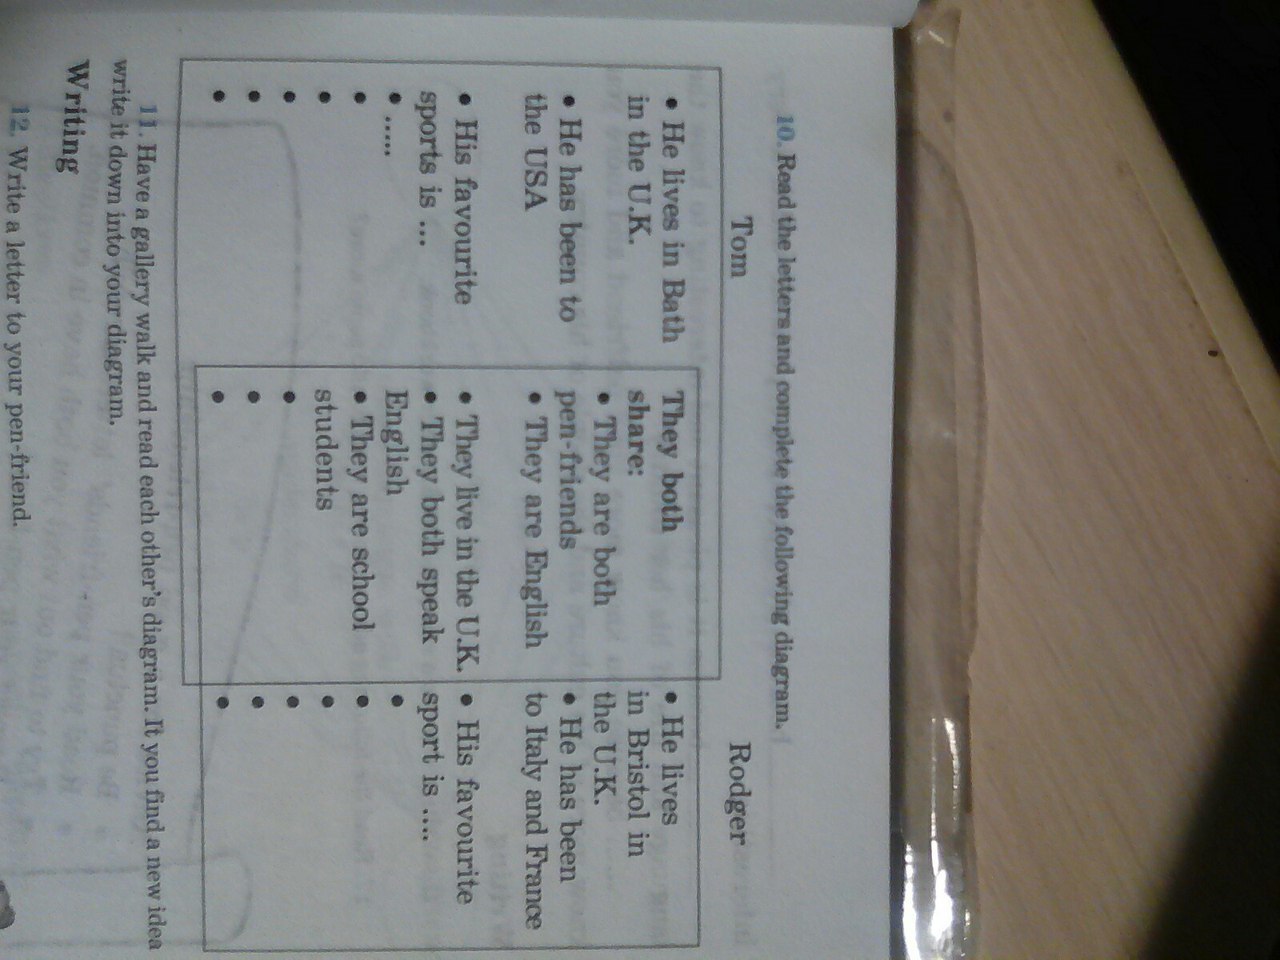 10. Read the letters and complete the following diagram.
Tom
Rodger
• He lives in Bath
in the U.K.
• He has been to
the USA
• His favourite
sports is ...
• .....
•
•
•
•
•
They both
share:
• They are both
pen-friends
• They are English
• They live in the U.K.
• They both speak
English
• They are school
students
•
•
•
• He lives
in Bristol in
the U.K.
• He has been
to Italy and France
• His favourite
sport is ....
•
•
•
•
•
•
11. Have a gallery walk and read each other's diagram. If you find a new idea
write it down into your diagram.
Writing
12. Write a letter to your pen-friend.